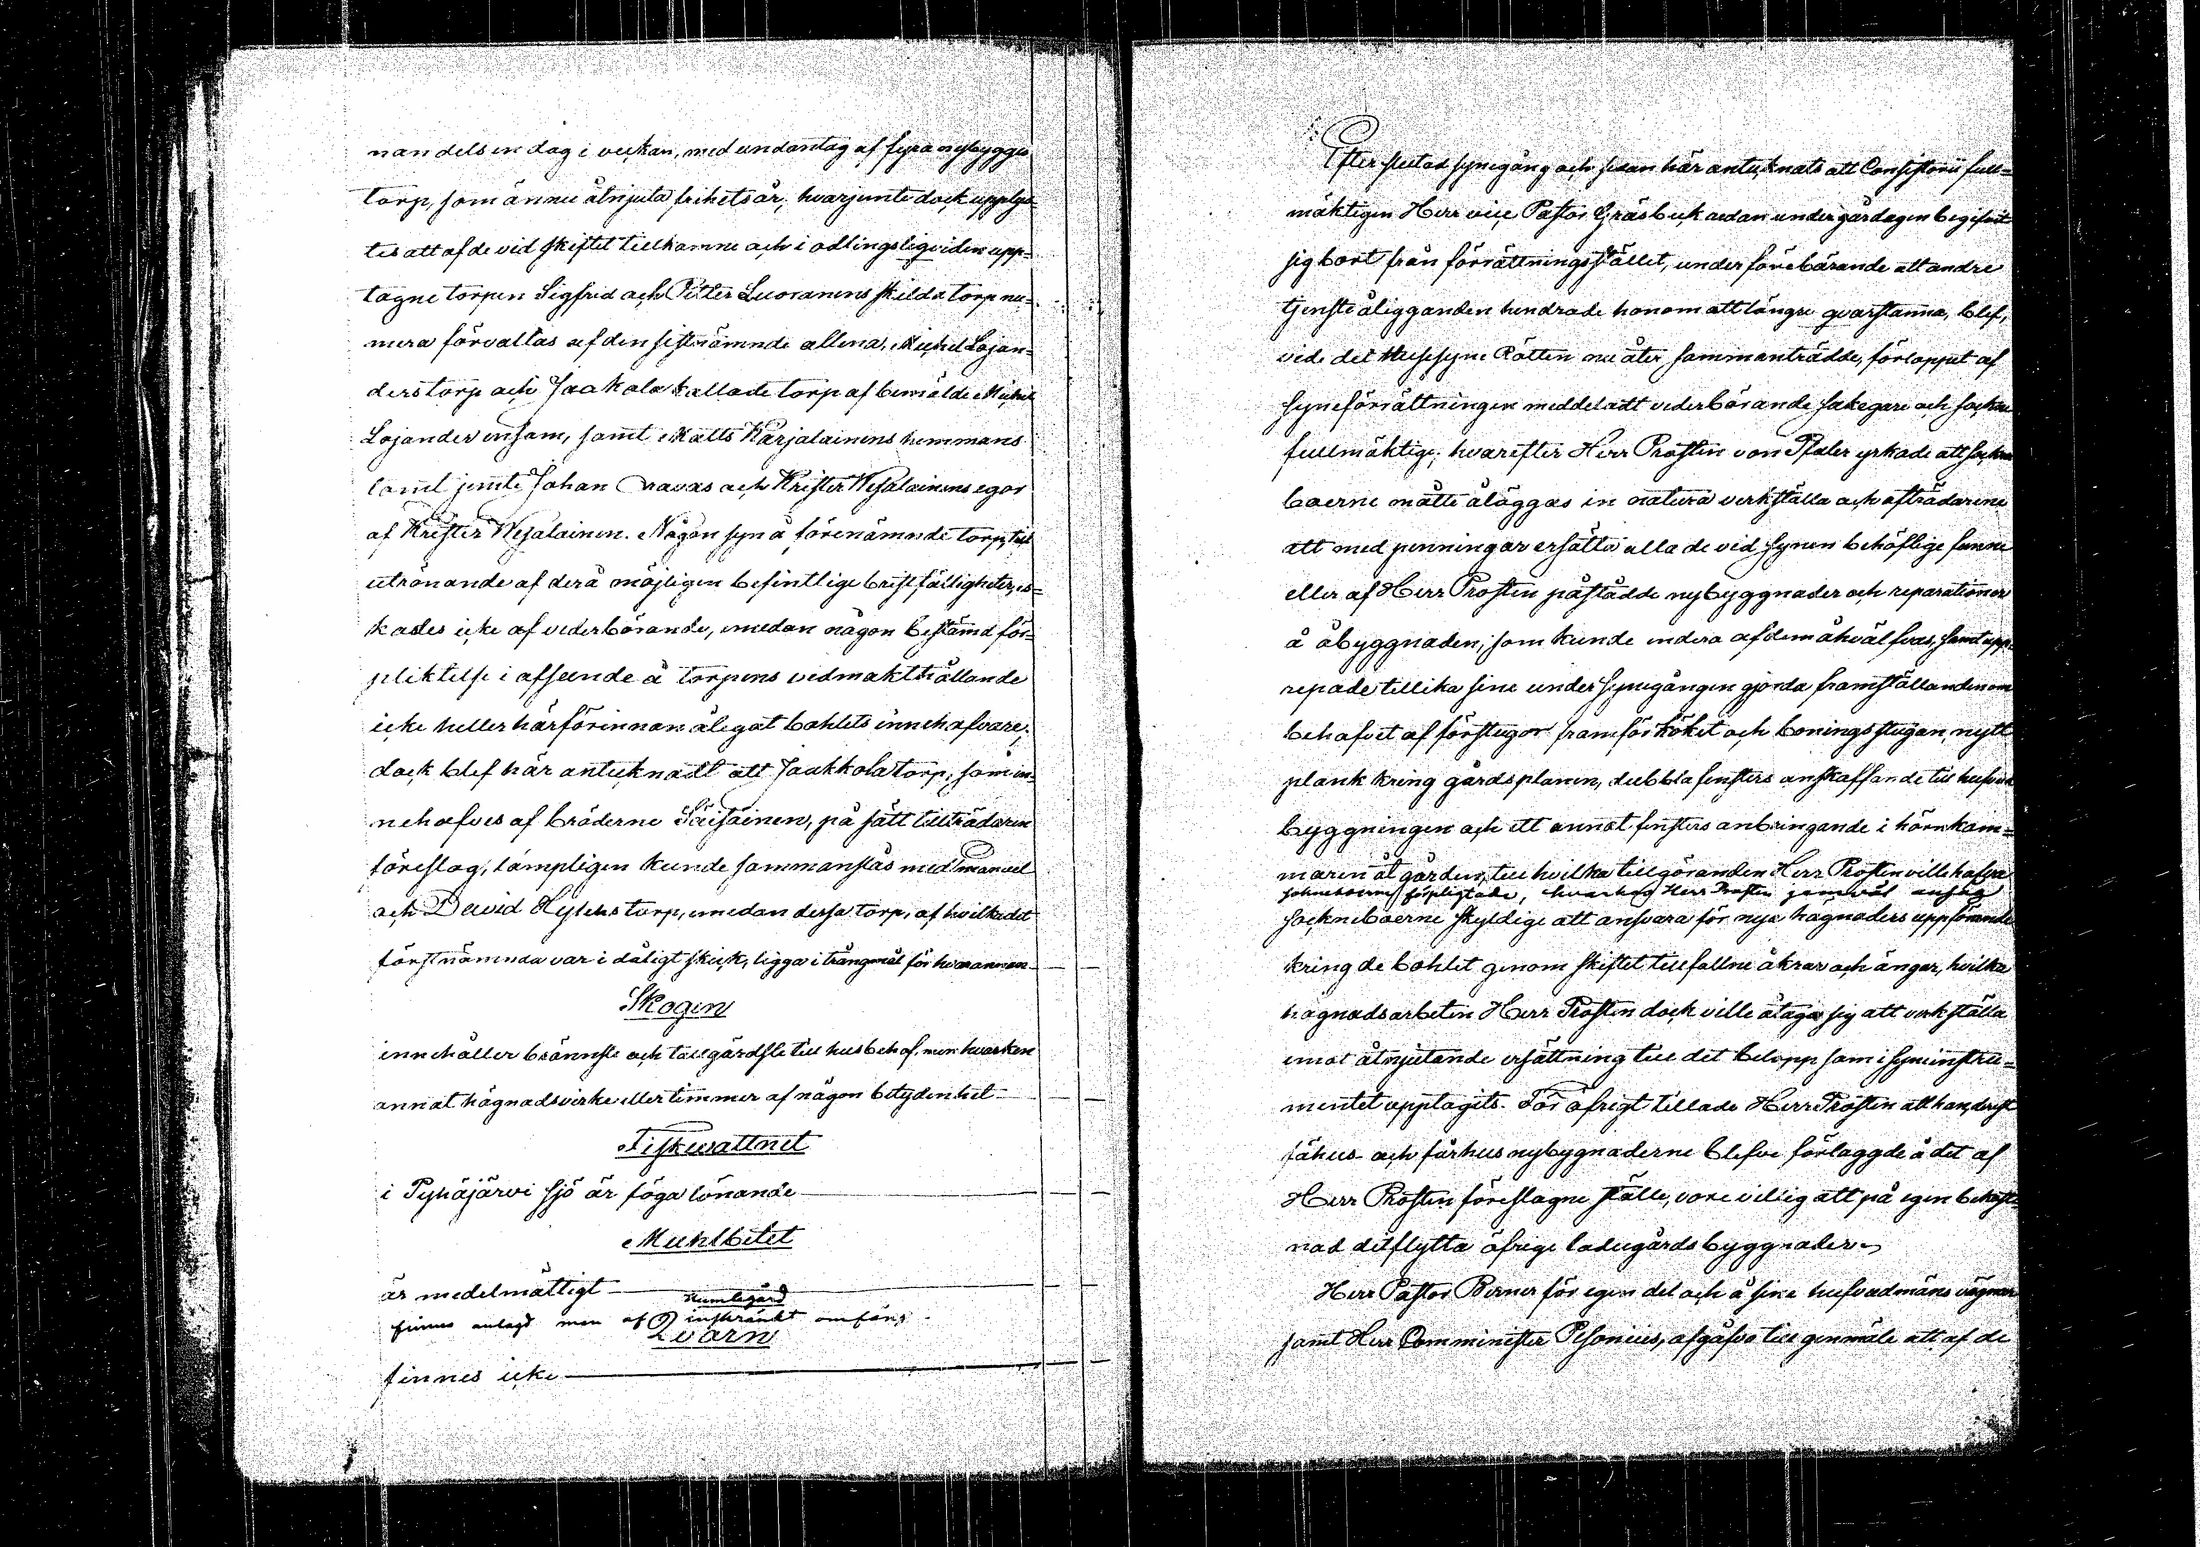 nan dels en dag i veckan, med undantag af fyra nybygges
torp, som ännu åtnjuta frihetsår; hvarjemte dock upplys-
tes att af de vid skiftet tillkomne och i odlingsliqviden upp-
tagne torpen Sigfrid och Petter Luoranens skilda torp nu-
mera förvaltas af den sistnämnde allena, Michel Lojan-
ders torp och Jaakola kallade torp af bemälde Michel
Lojander ensam, samt Matts Karjalainens hemmans
lamt jemte Johan Oravas och Krister Wesalainens egor
af Krister Wesalainen. Någon syn å förenämnde torp, till
utrönande af derå möjligen befintlige bristfälligheter, äs-
kades icke af vederbörande, emedan någon bestämd för-
pliktelse i afseende å torpens vedmakthållande
icke heller härförinnan ålegat bohlets innehafvare;
dock blef här antecknadt att Jaakkola torp, som in-
nehafves af bröderne Säisäinen, på sätt tillträdaren
föreslog, lämpligen kunde sammanslås med Emanuel
och David Hyléns torp, emedan dessa torp, af hvilka det
förstnämnda var i dåligt skick, ligga i trångmål för hvarannan
Skogen
innehåller brännsle och tallgärdsle till husbehof, men hvarken
annat hägnadsvirke eller timmer af någon betydenhet
Fiskevattnet
i Pyhäjärvi sjö är föga lönande
Muhlbetet
är medelmåttigt
Humlegård
finnes anlagd men af inskränkt omfång
Qvarn
finnes icke
Efter slutad synegång och sedan här antecknats att Consistorii full-
mäktigen Herr vice Pastor Gråsbeck redan under gårdagen begifvit
sig bort från förrättningsstället, under förebärande att andre
tjenståligganden hindrade honom att längre qvarstanna, blef,
vid det Husesyns Rätten nu åter sammanträdde, förloppet af
syneförrättningen meddeladt vederbörande sakegare och socken
fullmäktige; hvarefter Herr Prosten von Pfaler yrkade att socken
boerne måtte åläggas in natura verkställa och afträdarene
att med penningar ersätta alla de vid synen behöflige funne
eller af Herr Prosten påstådde nybyggnader och reparationer
å åbyggnaden, som kunde endera af dem åhvälfvas, samt upp-
repade tillika sine under synegången gjorda framställanden om
behofvet af förstugor framför köket och boningsstugan, nytt
plank kring gårdsplanen, dubbla fensters anskaffande till hufvud
byggningen och ett annat fensters anbringande i hörnkam-
maren åt gården, till hvilka tillgöranden Herr Prosten ville hafva
sockneboerne förpligtade, hvarhos Herr Prosten jemväl ansåg
sockneboerne skyldige att ansvara för nya hägnaders uppförande
kring de bohlet genom skiftet tillfallne åkrar och ängar, hvilka
hägnadsarbeten Herr Prosten dock ville åtaga sig att verkställa
emot åtnjutande ersättning till det belopp som i syneinstru-
mentet upptagits. För öfrigt tillade Herr Prosten att han, derest
fähus- och fårhus nybygnaderne blefve förlaggde å det af
Herr Prosten föreslagne ställe, vore villig att på egen bekost-
nad ditflytta öfrige ladugårdsbyggnader.
Herr Pastor Berner för egen del och å sine hufvudmäns vägnar
samt Herr Comminister Pesonius, afgåfvo till genmäle att af de